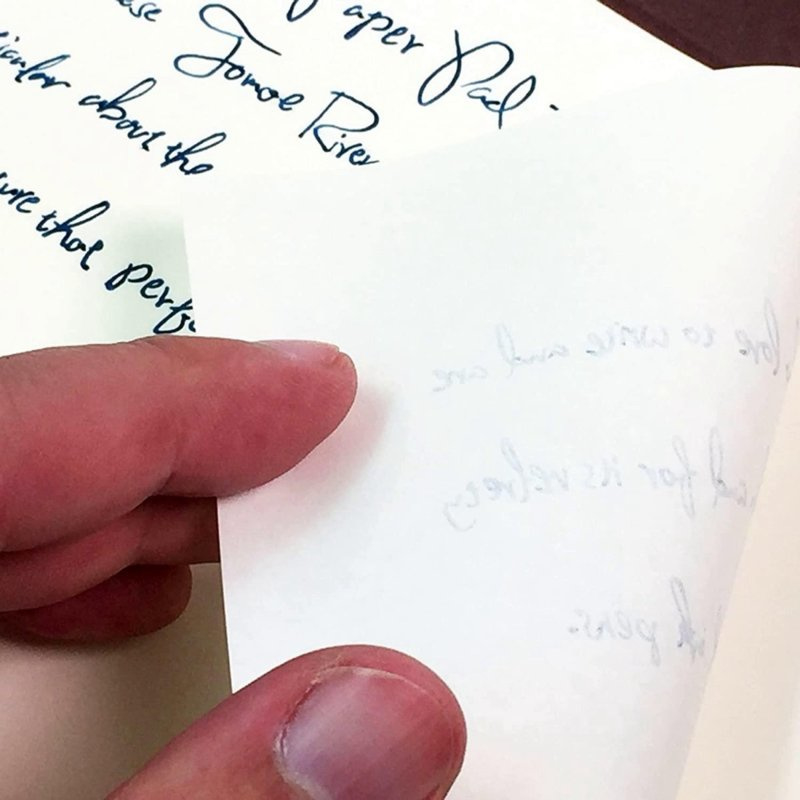 aper Pad -
Tomoe River
about the
that
love to write and are
for its velvety
pens.